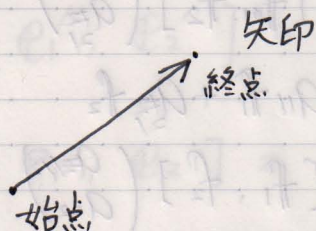 矢印
終点
始点